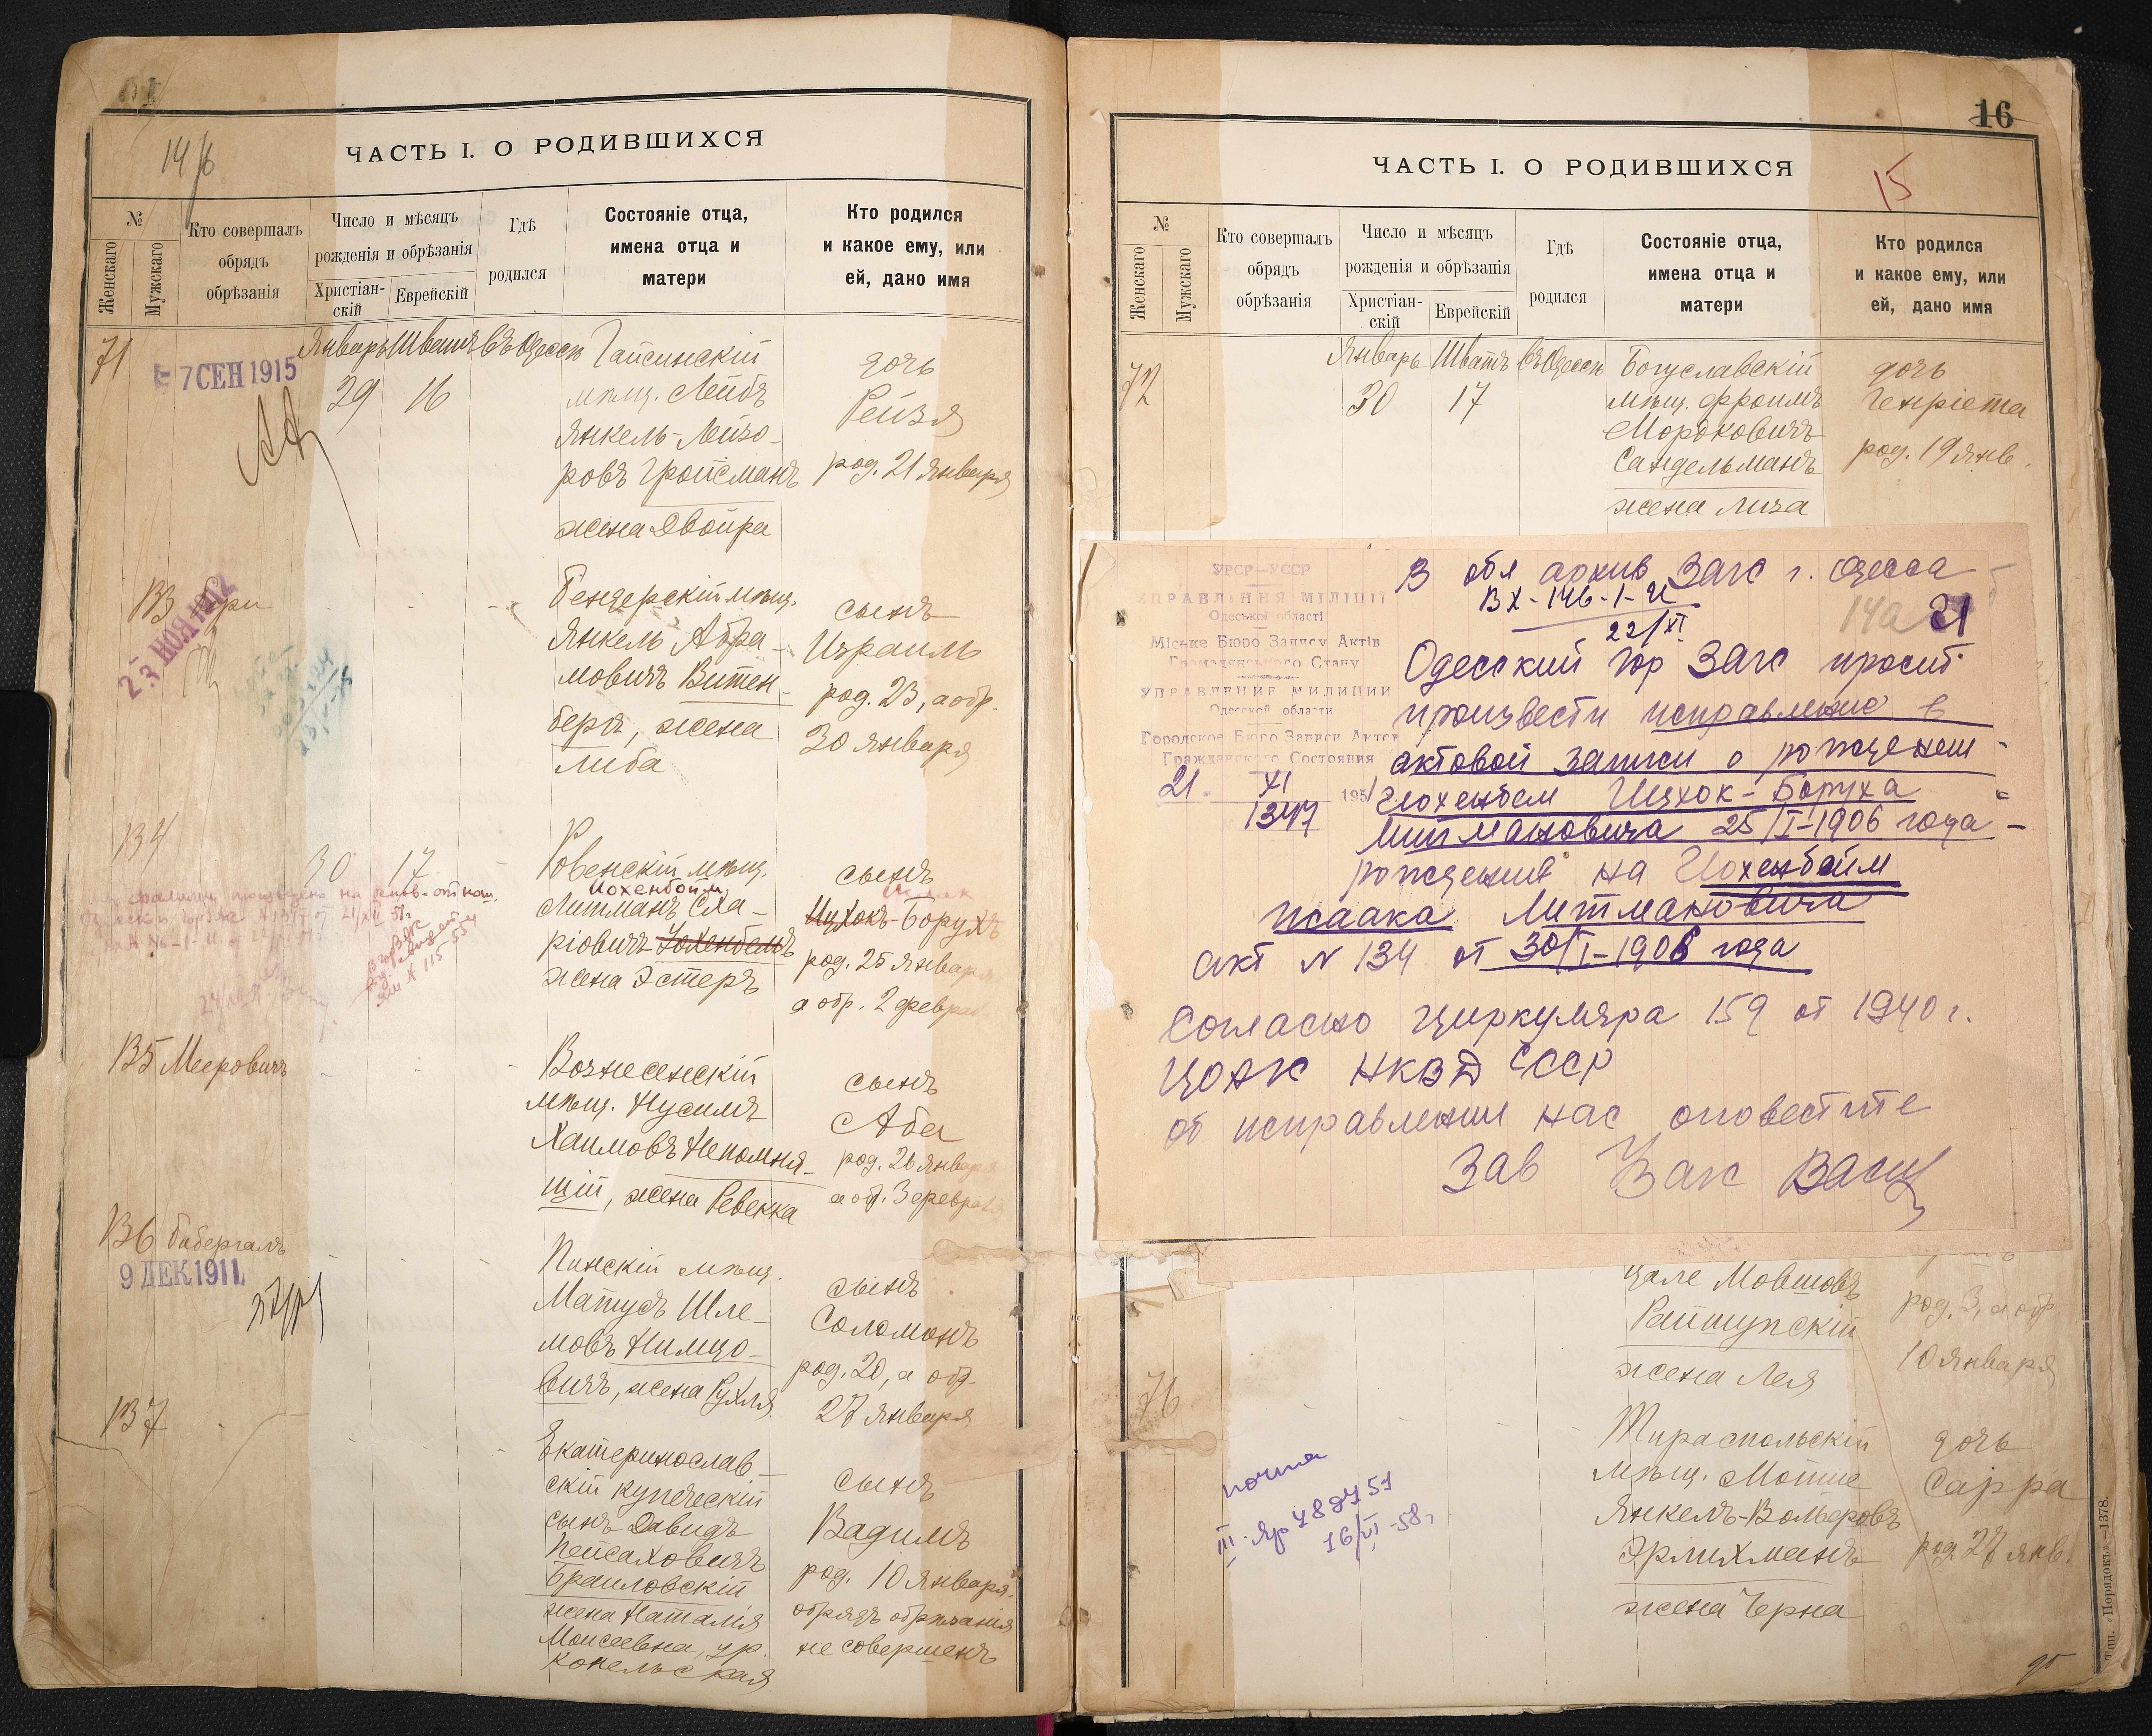 14/6
ЧАСТЬ I. О РОДИВШИХСЯ
№
Женскаго
Мужскаго
Кто совершалъ
обрядъ
обрѣзанія
Число и мѣсяцъ
рожденія и обрѣзанія
Христіан-
скій
Еврейскій
Гдѣ
родился
Состояніе отца,
имена отца и
матери
Кто родился
и какое ему, или
ей, дано имя
71
7 СЕН 1915
Январь Шватъ въ Одессѣ
29 16
Гайсинскій
мѣщ. Лейбъ
Янкель-Лейзо-
ровъ Гройсманъ
жена Двойра
дочь
Рейзя
род. 21 Января
133
23 НОЯ 1912
Бендерскій мѣщ.
Янкель Абра-
мовичъ Витен-
бергъ, жена
Либа
сынъ
Израиль
род. 23, а обр.
30 Января
134
30 17
Ровенскій мѣщ.
Иохенбойм
Литманъ Сла-
ріовичъ Іохенбемъ
жена Эстеръ
сынъ
Ицхокъ-Борухъ
род. 25 Января
а обр. 2 феврал
135 Мееровичъ
Вознесенскій
мѣщ. Нусимъ
Хаимовъ Непомня-
щій, жена Ревекка
сынъ
Аба
род. 26 Января
а об. 3 февраля
136 Бибергалъ
9 ДЕК 1911
Пинскій мѣщ.
Матусъ Шле-
мовъ Нимцо-
вичъ, жена Рухля
сынъ
Соломонъ
род. 20, а обр.
27 Января
137
Екатеринослав-
скій купеческій
сынъ Давидъ
Пейсаховичъ
Браиловскій
жена Наталія
Моисеевна, ур.
Копельская
сынъ
Вадимъ
род. 10 Января.
обрядъ обрѣзанія
не совершенъ
16
15
ЧАСТЬ I. О РОДИВШИХСЯ
№
Женскаго
Мужскаго
Кто совершалъ
обрядъ
обрѣзанія
Число и мѣсяцъ
рожденія и обрѣзанія
Христіан-
скій
Еврейскій
Гдѣ
родился
Состояніе отца,
имена отца и
матери
Кто родился
и какое ему, или
ей, дано имя
72
Январь Шватъ въ Одессѣ
30 17
Богуславскій
мѣщ. Фроимъ
Мордковичъ
Сандельманъ
жена Лиза
дочь
Генріета
род. 19 Янв.
УРСР—УССР
УПРАВЛІННЯ МІЛІЦІЇ
Одеської області
Міське Бюро Запису Актів
Громадянського Стану
УПРАВЛЕНИЕ МИЛИЦИИ
Одесской области
Городское Бюро Записи Актов
Гражданского Состояния
21 XI 1951
1347
В обл архив Загс г. Одесса
ВХ-146-1-И
22/XI
14а 21
Одесский гор Загс просит
произвести исправление в
актовой записи о рождении
Иохенбем Ицхок-Боруха
Литмановича 25/I-1906 года
рождения на Иохенбойм
Исаака Литмановича
акт N 134 от 30/I-1906 года
Согласно циркуляра 159 от 1940 г.
ЦОАГС НКВД СССР
об исправлении нас оповестите
Зав Загс
цале Мовшовъ
жена Лея
род. 3, а обр.
10 Января
76
почта
III-Яр 488451
16/VI-58г
Тираспольскій
мѣщ. Мотте
Янкель-Вольфовъ
Эрлихманъ
жена Черна
дочь
Сарра
род. 27 янв.
Тип. «Порядокъ»—1378.